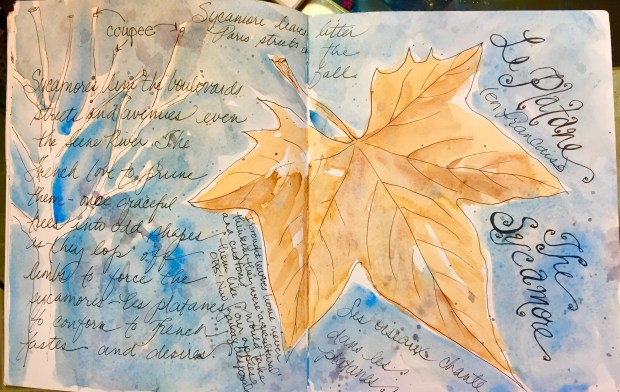 coupée
Sycamore leaves litter
Paris streets in the
fall.
Sycamores line the boulevards
streets and avenues even
the seine River. The
french love to prune
them - once graceful
trees into odd shapes
as they lop off
limbs to force the
sycamores - les platanes
to conform to French
tastes and desires.
I brought leaves home never
thinking they were "agriculture"
and customs
OOPS.
Le Platane
(en francais)
The
Sycamore
Les oiseaux chante
dans les
platanes